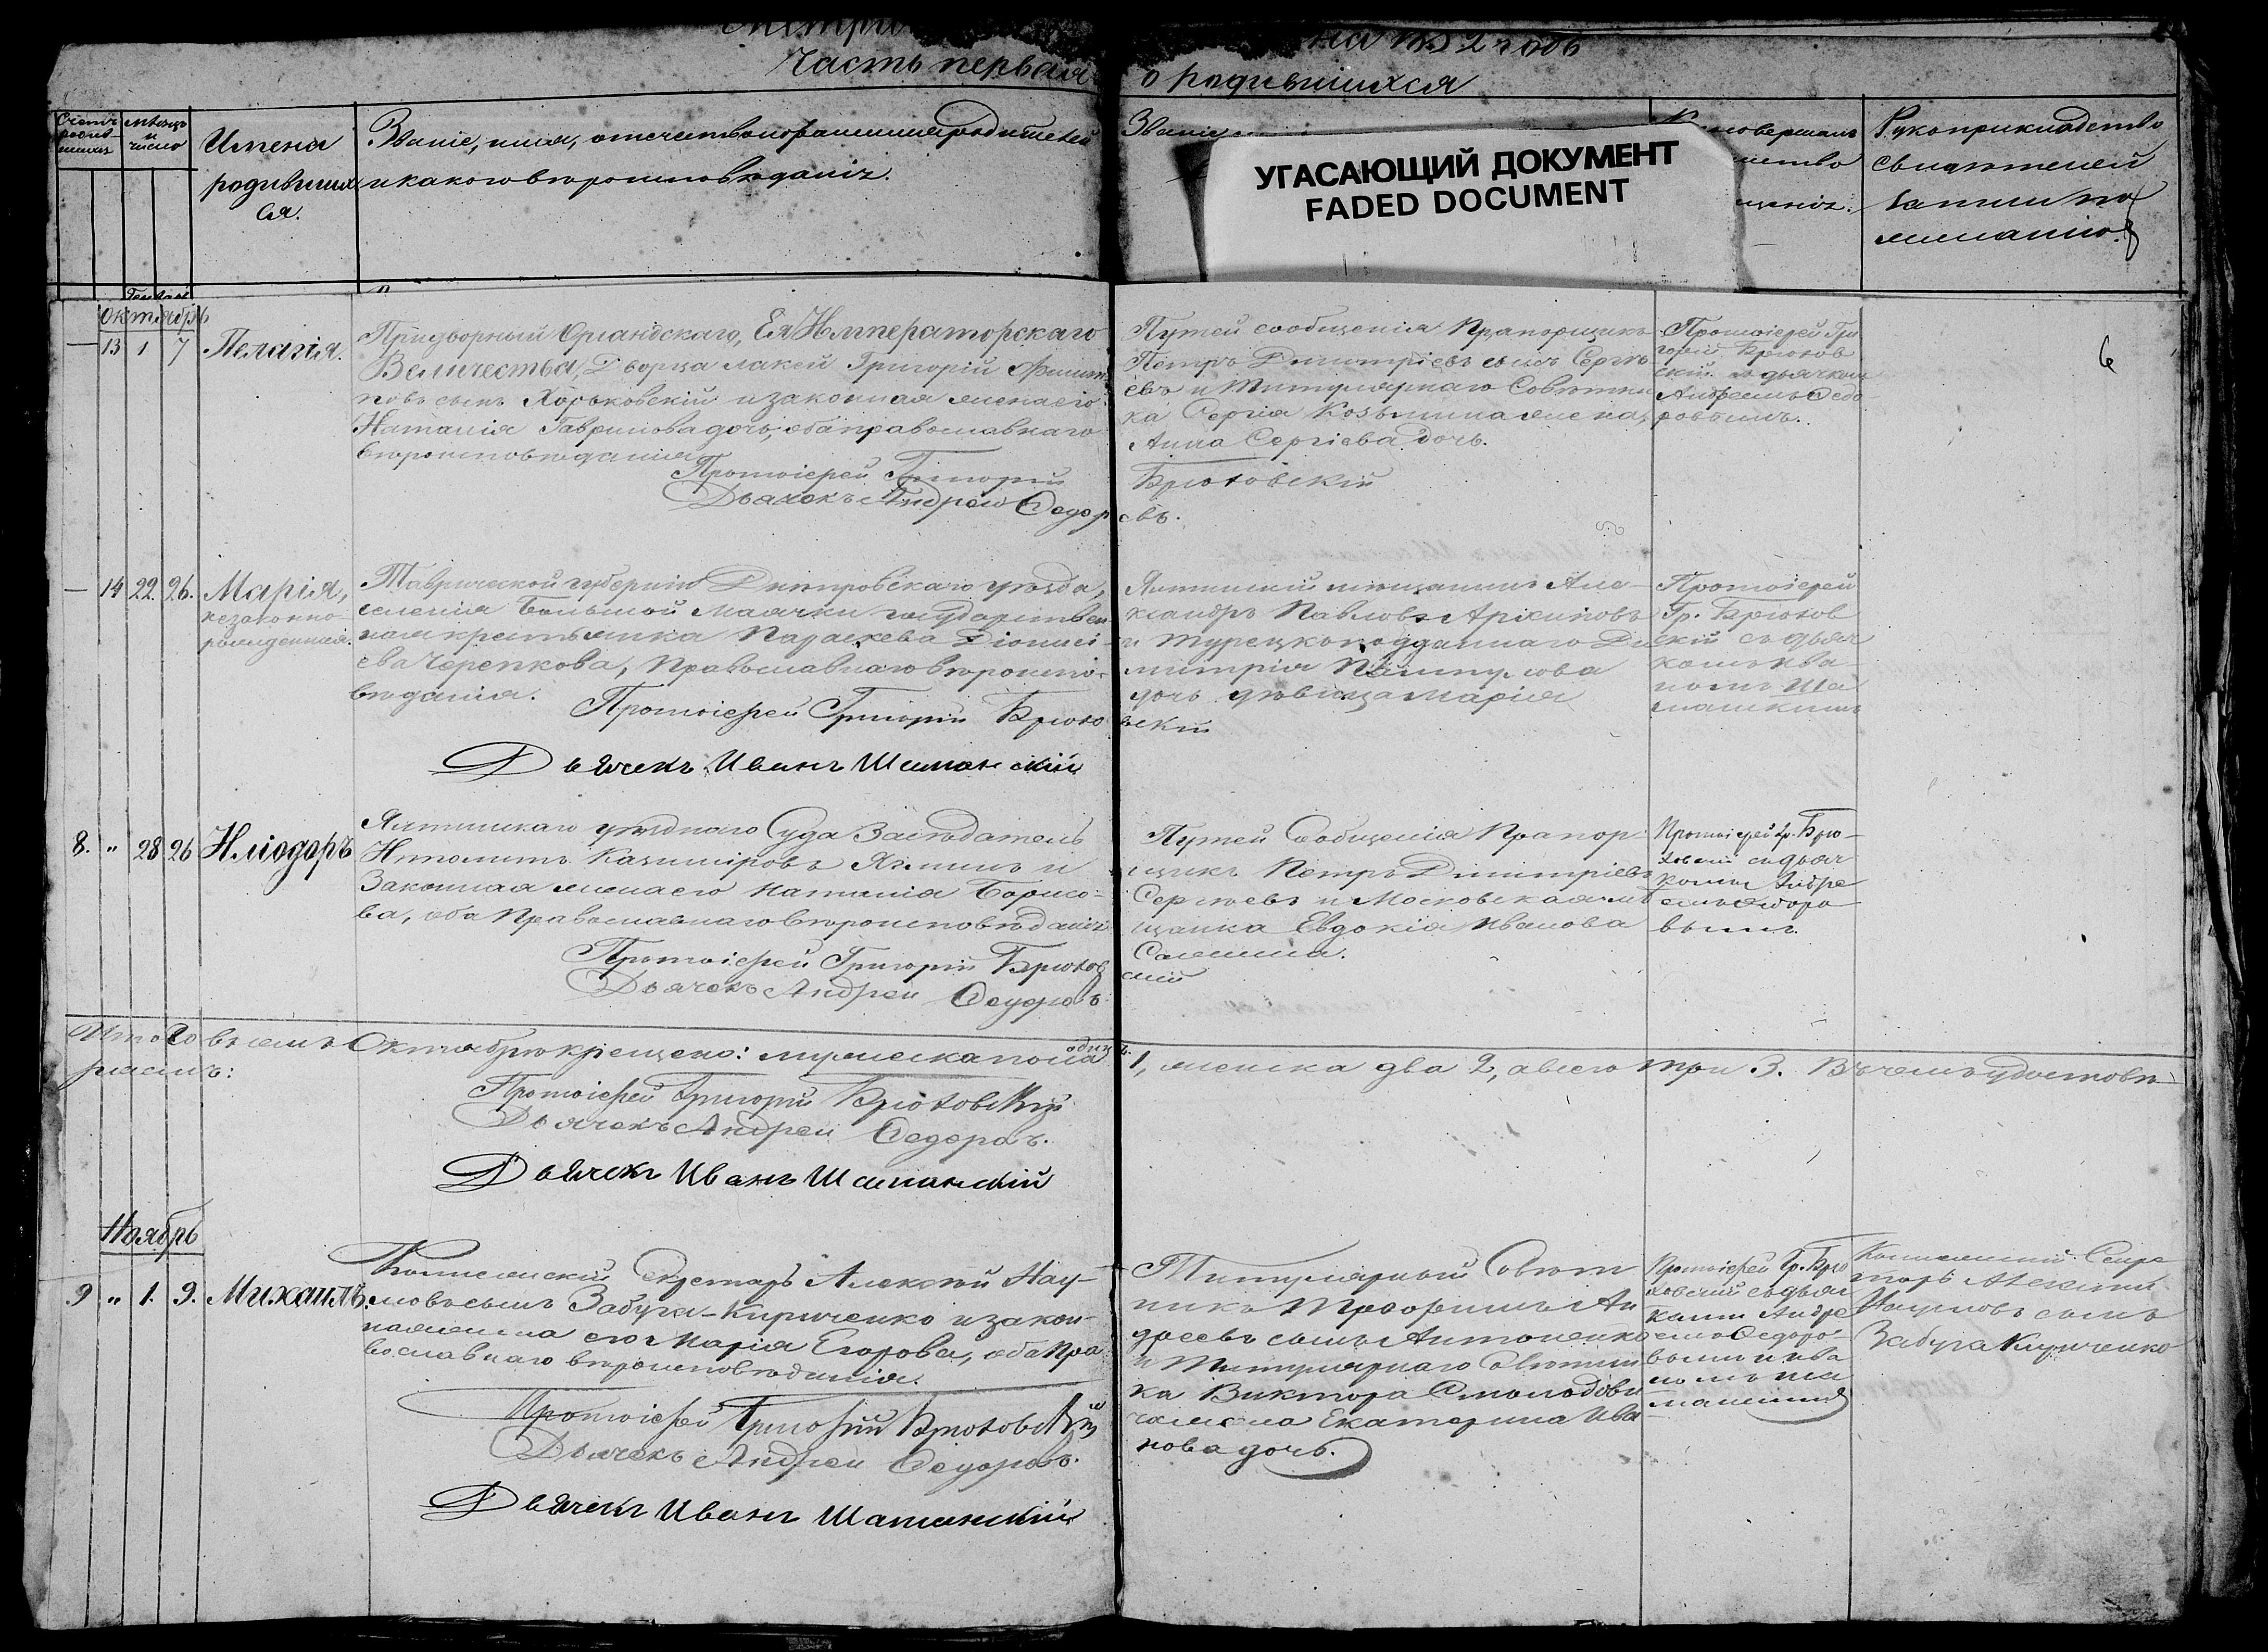 на 1852 годъ
Часть первая о родившихся
Счетъ родив-
шихся
мѣсяцъ
и
число
Имена
родивших
ся.
Званіе, имя, отчество и фамилія родителей
и какого вѣроисповѣданія.
Званіе
совершалъ
Рукоприкладство
свидѣтелей
записи по
желанію.
УГАСАЮЩИЙ ДОКУМЕНТ
FADED DOCUMENT
Октябрь
13 1 7 Пелагія.
Придворный Оріандскаго, Ея Императорскаго
Величества, Дворца лакей Григорій Филип
повъ сынъ Харьковскій и законная жена его
Наталія Гаврилова дочь, оба православнаго
вѣроисповѣданія
Протоіерей Григорій Брюховскій
Дьячекъ Андрей Ѳедоровъ.
Путей сообщенія Прапорщикъ
Петръ Димитріевъ сынъ Сергѣ
евъ и Титулярнаго Совѣтни
ка Сергія Козьмина жена,
Анна Сергіева дочь.
Протоіерей Гри
горій Брюхов
скій съ дьячком
Андреемъ Ѳедо
ровымъ.
6
14 22. 26. Марія,
незаконно-
рожденная.
Таврической губерніи Днѣпровскаго уѣзда,
селенія Большой Маячки государствен
ная крестьянка Параскева Діонисі
ева Черепкова, Православнаго вѣроиспо-
вѣданія.
Протоіерей Григорій Брюховскій
Дьячекъ Иванъ Шиманскій
Ялтинскій мѣщанинъ Але-
ксандръ Павловъ Архиповъ
и турецкоподданнаго Ди
митрія
дочь дѣвица Марія
Протоіерей
Гр. Брюхов
скій съ дьяч
комъ Ива-
номъ Ши
манскимъ
8. " 28 26 Иліодоръ
Ялтинскаго уѣзднаго Суда Засѣдатель
Иполитъ Казиміровъ и
Законная жена его Наталія Борисо-
ва, оба Православнаго вѣроисповѣданія
Протоіерей Григорій Брюховскій
Дьячекъ Андрей Ѳедоровъ
Путей Сообщенія Прапор-
щикъ Петръ Димитріевъ
Сергѣевъ и Московская мѣ
щанка Евдокія Иванова
Протоіерей Гр. Брю-
ховскій съ дьяч
комъ Андре
емъ Ѳедоро-
вымъ.
Итого въ семъ Октябрѣ крещено: мужеска пола одинъ 1, женска два 2, а всего три 3. Въ чемъ удостовѣ-
ряемъ:
Протоіерей Григорій Брюховскій
Дьячекъ Андрей Ѳедоровъ.
Дьячекъ Иванъ Шиманскій
Ноябрь
9 " 1. 9. Михаилъ.
Коллежскій Секретарь Алексѣй Нау-
мовъ сынъ Забуга-Кириченко и закон-
ная жена его Марія Егорова, оба Пра
вославнаго вѣроисповѣданія.
Протоіерей Григорій Брюховскій
Дьячекъ Андрей Ѳедоровъ.
Дьячекъ Иванъ Шиманскій
Титулярный Совѣт
никъ Трофимъ Ан
дреевъ сынъ Антоненко
и Титулярнаго Совѣтни
ка Виктора
жена Екатерина Ива
нова дочь.
Протоіерей Гр. Брю
ховскій съ дьяч
ками Андре
емъ Ѳедоро-
вымъ и Ива
номъ Ши
манскимъ
Коллежскій Секре
тарь Алексѣй
Наумовъ сынъ
Забуга Кириченко